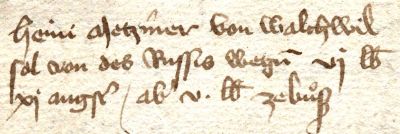 Heini Metzmer von walchwil
sol von des Russis wegen vj lb
xj angst / ab v. lb ze buͦß